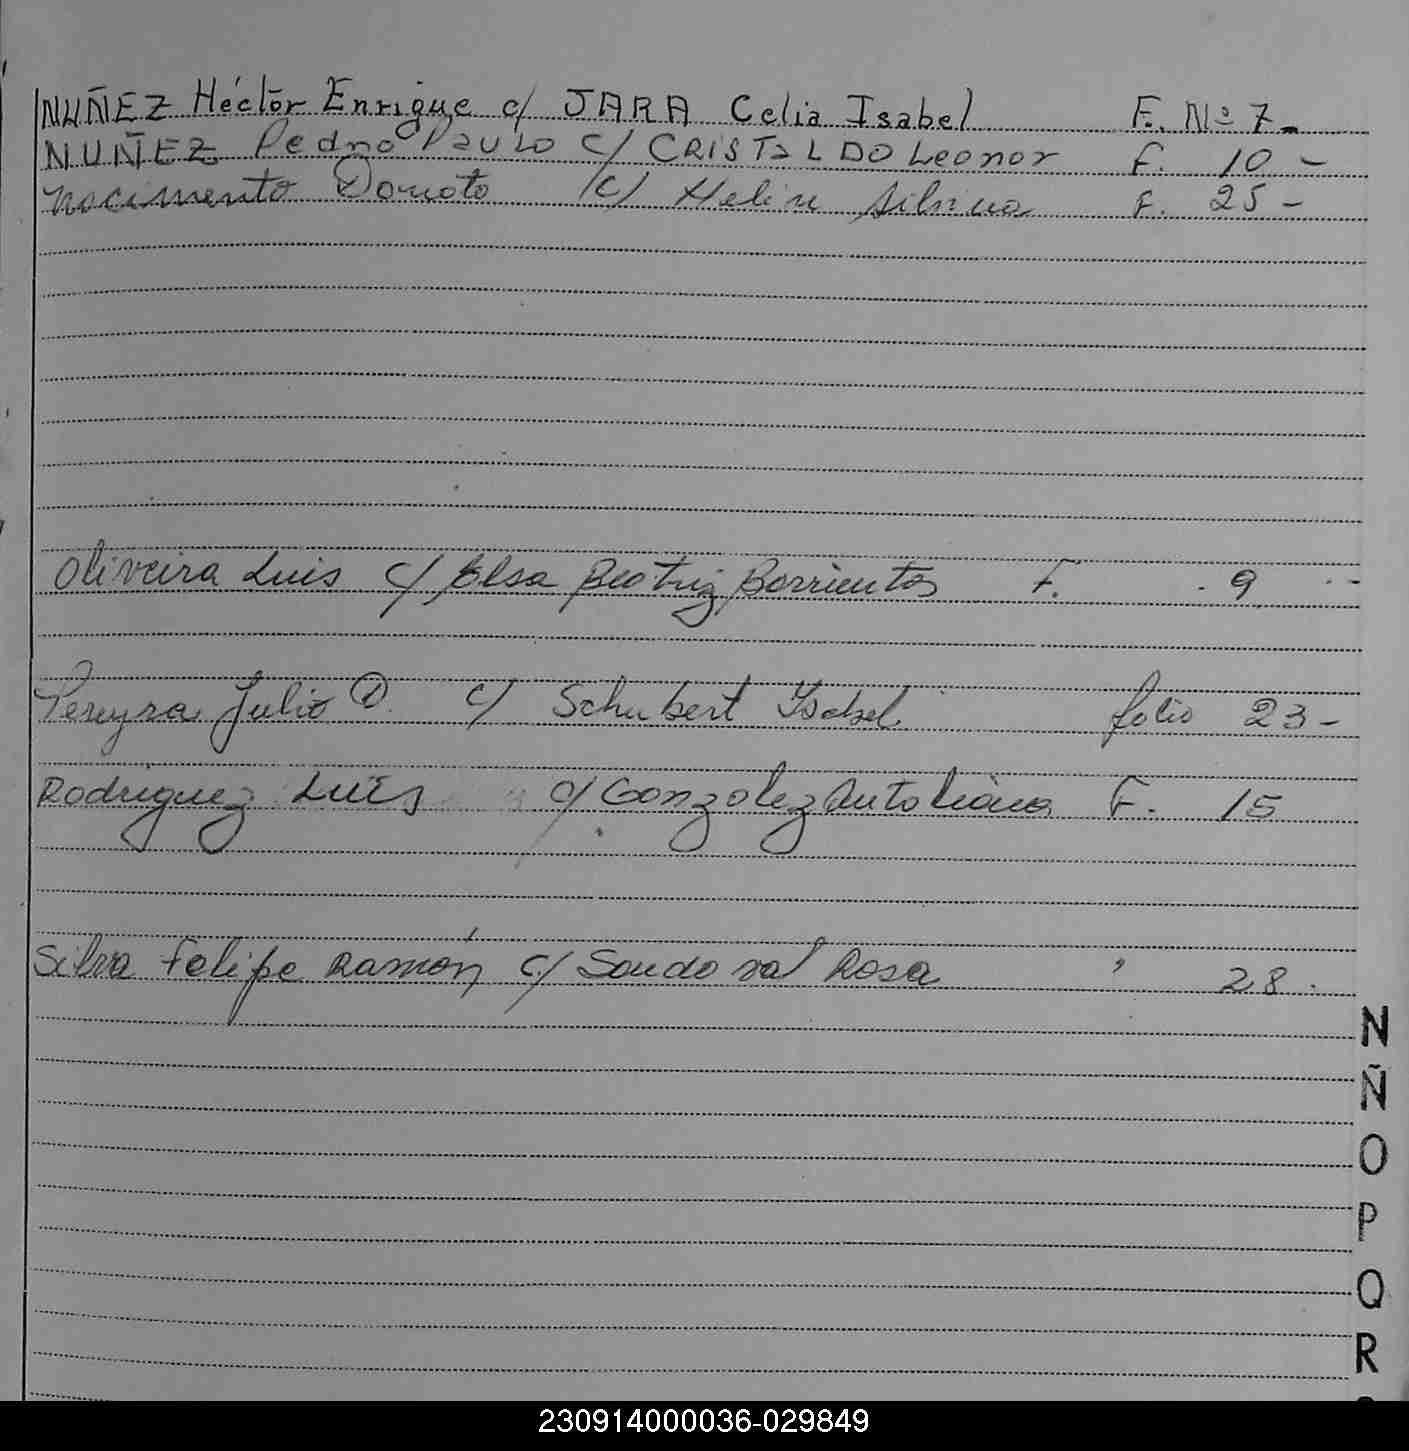 NUÑEZ Héctor Enrique c/ JARA Celia Isabel F. Nº 7-
NUÑEZ Pedro Paulo c/ CRISTALDO Leonor F. 10 -
Nacimento Donato c/ Helin Silvina F. 25 -
Oliveira Luis c/ Elsa Beatriz Barrientos F. 9
Pereyra Julio D. c/ Schubert Isabel folio 23-
Rodriguez Luis c/ Gonzalez Autoliana F. 15
Silva Felipe Ramón c/ Sandoval Rosa " 28.
N
Ñ
O
P
Q
R
230914000036-029849